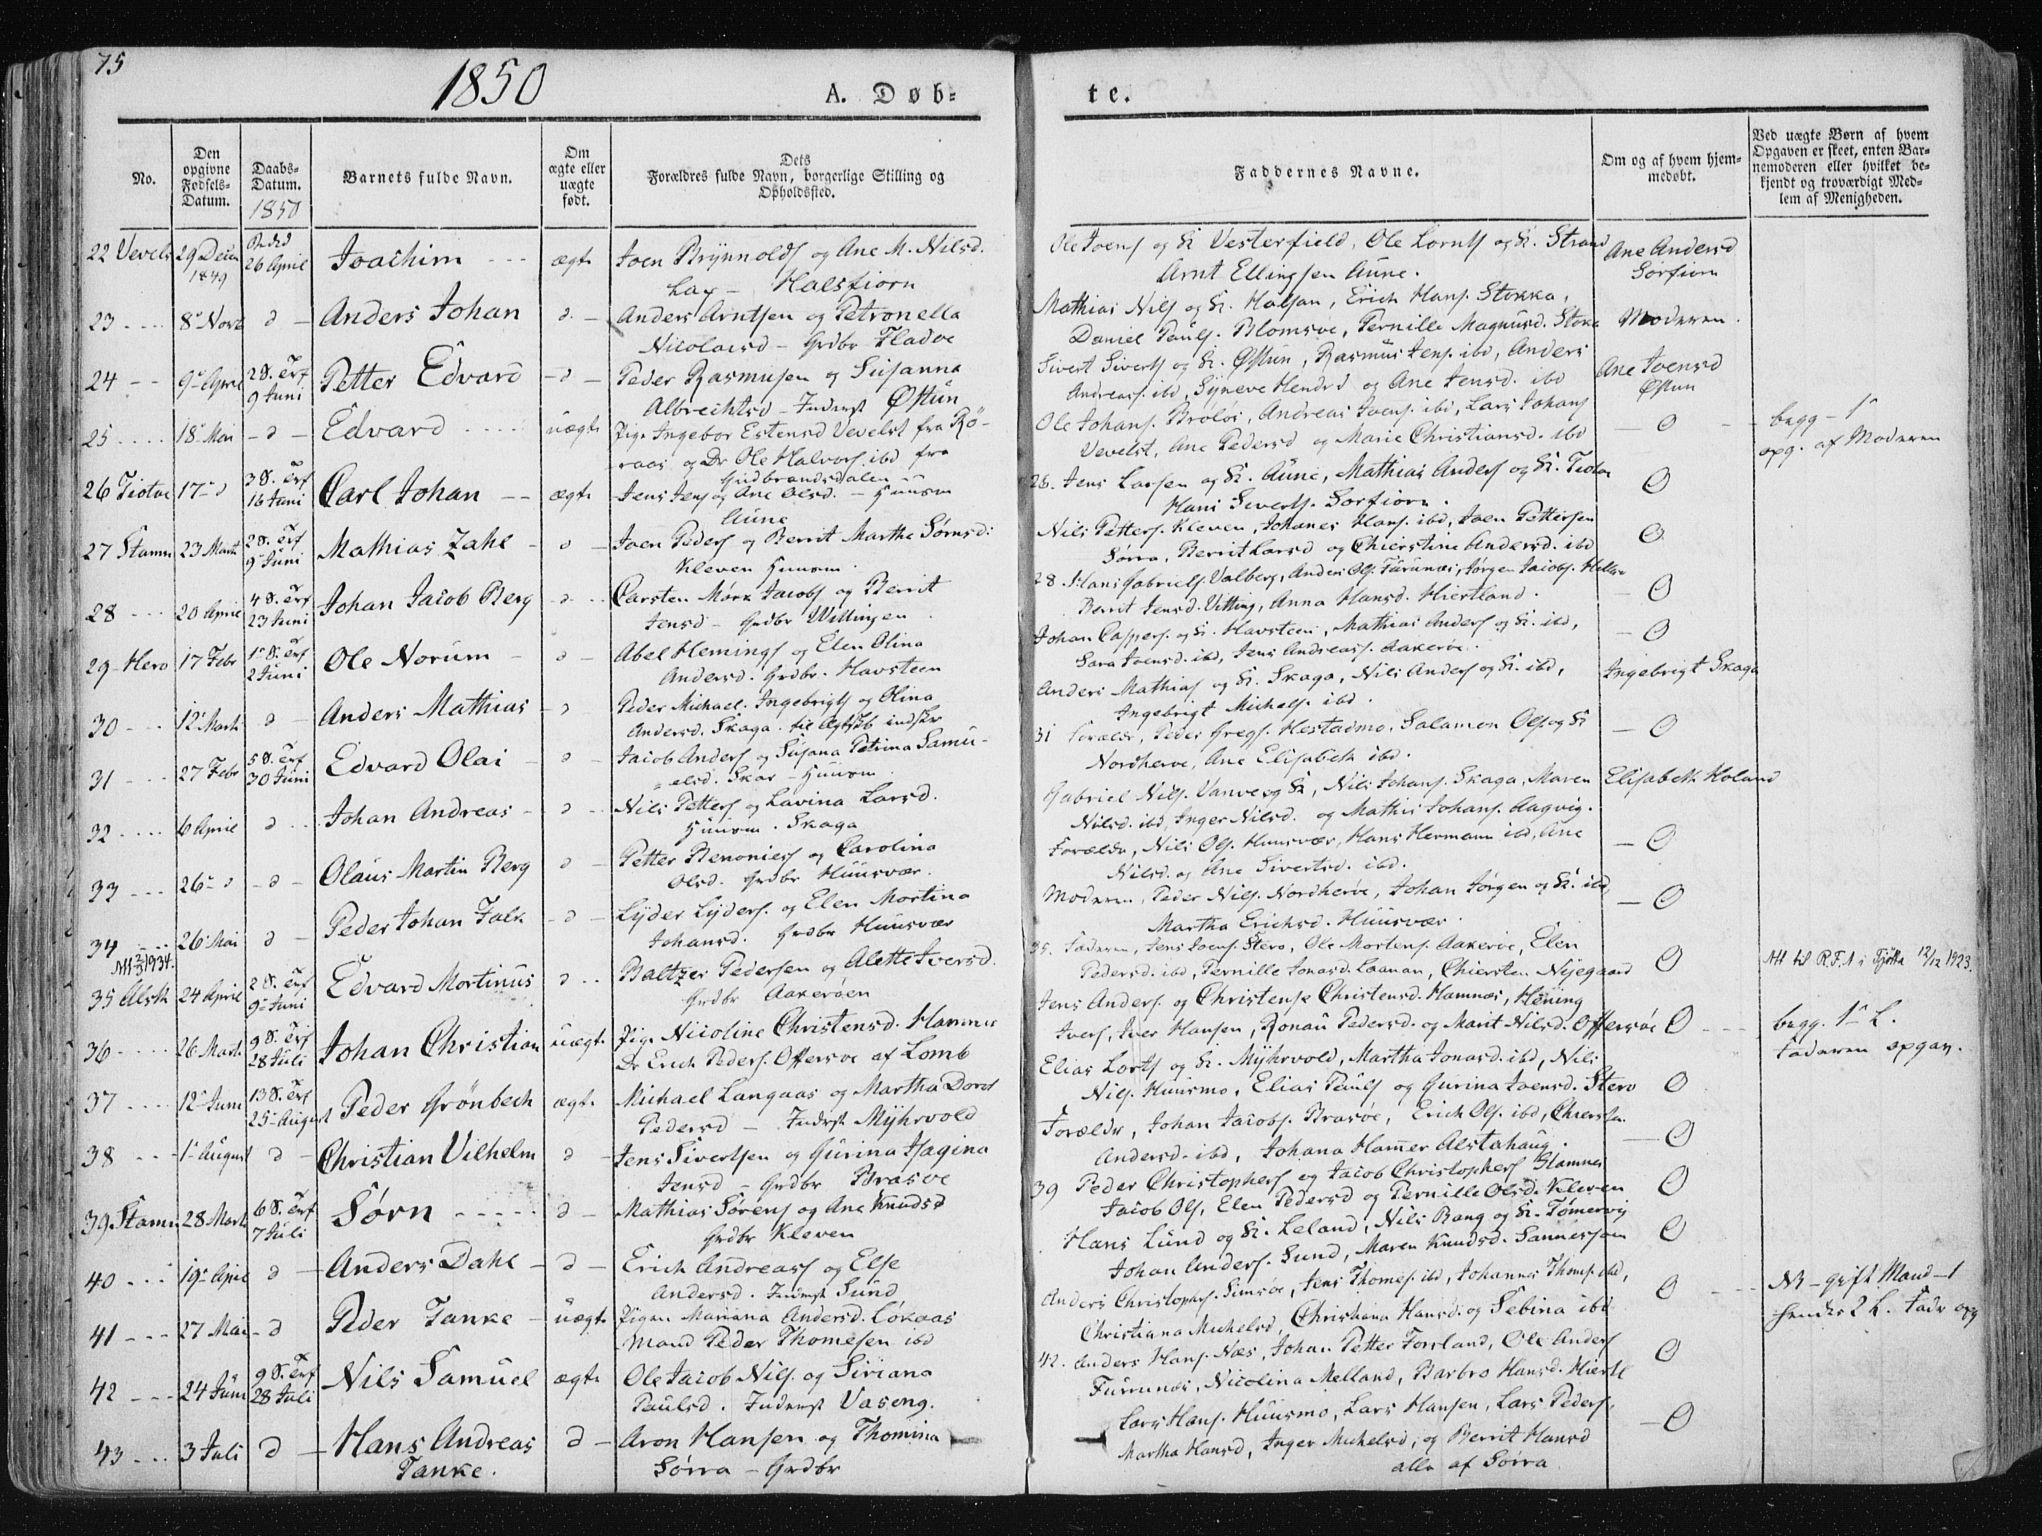 75
1850
A. Døb-
te.
No.
Den opgivne Fødsels-Datum.
Daabs-Datum.
1850
Barnets fulde Navn.
Om ægte eller uægte født.
Dets
Forældres fulde Navn, borgerlige Stilling og
Opholdssted.
Faddernes Navne.
Om og af hvem hjem-
medøbt.
Ved uægte Børn af hvem
Opgaven er skeet, enten Bar-
nemoderen eller hvilket be-
kjendt og troværdigt Med-
lem af Menigheden.
22 Vevels 29 Decbr 1849 26 April Joachim ægte Joen Brynnolds og Ane M. Nilsd.
Halsfiorn
Ole Joens og K. Vesterfield, Ole Lornts og K. Strand
Arnt Ellingsen Aune.
Ane Andersd
Sørfiorn
23 8 Novr d Anders Johan d. Anders Arntsen og Petronella
Nicolaisd - Grdbr Fladøe
Mathias Nils og K. Halsan, Erich Hans. Stokka,
Daniel Pauls. Blomsøe, Pernille Magnusd. Stoke
Moderen.
24 9 April 2 S. Trf 9 Juni Petter Edvard d Peder Rasmusen og Susanna
Albrechtsd - Inderst Østun
Sivert Siverts og K. Østun, Rasmus Jens. ibd, Anders
Andreass. ibd, Synneve Hendrd og Ane Jensd. ibd
Ane Joensd
Østun
25 18 Mai d Edvard uægte Pige Ingebor Estensd Vevelst fra Rø-
raas og Dr Ole Halvors. ibd fra
Gudbrandsdalen
Ole Johans. Brøløs, Andreas Joens. ibd, Lars Johans
Vevelst, Ane Pedersd og Marie Christiansd. ibd
0
begg - 1
opg. af Moderen
26 Tiøtøe 17 d 3 S. Trf 16 Juni Carl Johan ægte Jens Jens og Ane Olsd. - Huusm
Aune
26. Jens Larsen og K. Aune, Mathias Anders og K. Tiotøe
Hans Siverts. Sørfiorn.
0
27 Stamn 23 Marts 2 S. Trf 9 Juni Mathias Zahl d Joen Peders og Berrit Martha Sørnsd:
Kleven Huusm.
Nils Petters. Kleven, Johanes Hans. ibd, Joen Pettersen
Sørra, Berrit Larsd og Chierstine Andersd. ibd
0
28 20 April 4 S. Trf 23 Juni Johan Jacob Berg d Carsten Mørk Jacobs og Berrit
Jensd - Grdbr Wittingen
28. Hans Gabriels. Valberg, Anders Ols. Furunæs, Jørgen Jacobs.
Berrit Jensd. Vitting, Anna Hansd. Hiertland.
0
29 Herø 17 Febr 1 S. Trf 2 Juni Ole Norum d Abel Hemings og Elen Olina
Andersd. Grdbr. Havsteen
Johan Caspers. og K. Havsteen, Mathias Anders og K. ibd,
Sara Joensd. ibd, Jens Andreass. Aakerøe.
0
30 12 Marts d Anders Mathias d Peder Michael. Ingebrigts og Olina
Andersd. Skaga.
Anders Mathias og K. Skaga, Nils Anders og K. ibd,
Ingebrigt Michels. ibd.
Ingebrigt Skaga
31 27 Febr 5 S. Trf 30 Juni Edvard Olai d Jacob Anders og Susana Petrina Samu-
elsd. Skar - Huusm.
31 Forældr, Peder Gregs. Hestadmo, Salamon Ols og K
Nordherøe, Ane Elisabeth ibd.
0
32 6 April d Johan Andreas d Nils Petters og Lavina Larsd.
Huusm. Skaga
Gabriel Nils. Vanve og K, Nils Johans. Skaga, Maren
Nilsd. ibd, Inger Nilsd. og Mathis Johans. Aagvig.
Elisabeth Holand
33 26 d d Olaus Martin Berg d Petter Benoniers og Carolina
Olsd. Grdbr Huusvær.
Forældr, Nils Ols. Huusvær, Hans Hermann ibd, Ane
Nilsd. og Ane Sivertsd. ibd.
0
34 26 Mai d Peder Johan Falk d Lyder Lyders. og Elen Martina
Johansd. Grdbr Huusvær
Moderen, Peder Nils. Nordherøe, Johan Jørgen og K. ibd,
Martha Erichsd. Huusvær.
0
1934.
35 Alstb 24 April 2 S. Trf 9 Juni Edvard Mortinus d Baltzer Pedersen og Alette Iversd.
Grdbr Aakerøen
35. Faderen, Jens Joens. Sterø, Ole Mortens. Aakerøe, Elen
Pedersd. ibd, Pernille Jonasd. Laanan, Chiersten Nyegaard
0
Att til R.F.A i Tjøtta 12/12 1923.
36 26 Marts 9 S. Trf 28 Juli Johan Christian uægte Pige Nicoline Christensd. Hamnes
Dr Erich Peders. Offersøe af Lomb
Jens Anders. og Christense Christensd. Hamnæs, Hening
Ivers, Iver Hansen, Ronau Pedersd. og Marit Nilsd. Offersøe
0
begg. 1 L.
Faderen opgav.
37 12 Juni 13 S. Trf 25 August Peder Grønbech ægte Michael Langaas og Martha Dorot
Pedersd - Inderst Myhrvold
Elias Lorts og K. Myhrvold, Martha Jonasd. ibd, Nils
Nils. Huusmo, Elias Pauls og Gurina Joensd. Sterø
0
38 1 August d Christian Vilhelm d Jens Sivertsen og Gurina Hagina
Jensd - Grdbr Brasøe
Forældr, Johan Jacobs. Brasøe, Erich Ols. ibd, Chiersten
Andersd. ibd, Johana Hamer Alstahaug.
0
39 Stamn 28 Marts 6 S. Trf 7 Juli Sørn d Mathias Sørens og Ane Knudsd
Grdbr Kleven
39 Peder Christophers og Jacob Christophers Stamnes
Jacob Ols, Elen Pedersd og Pernille Olsd. Kleven
0
40 19 April d Anders Dahl d Erich Andreass og Else
Andersd. Inderst Sund
Hans Lund og K. Leland, Nils Bang og K. Tømervig
Johan Anders. Sund, Maren Knudsd. Sannessjøen
0
41 27 Mai d Peder Tanke uægte Pigen Mariana Andersd. Løkaas
Mand Peder Thomesen ibd
Anders Christophers. Simsøe, Jens Thomes. ibd, Johannes Thoms. ibd,
Christiana Michelsd, Christiana Hansd. og Sebina ibd
0
NB - gift Mand - 1
hendes 2 L. Fadr opg
42 24 Juni 9 S. Trf 28 Juli Nils Samuel ægte Ole Jacob Nils. og Siriana
Paulsd. Inderst Vaseng.
42. Anders Hans. Næs, Johan Petter Forsland, Ole Anders
Furunæs, Nicolina Melland, Barbro Hansd. Hiertl
0
43 3 Juli d Hans Andreas
Tanke. d Aron Hansen og Thomina
Sørra - Grdbr
Lars Hans. Huusmo, Lars Hansen, Lars Peders,
Martha Hansd, Inger Michelsd, og Berrit Hansd
alle af Sørra
0